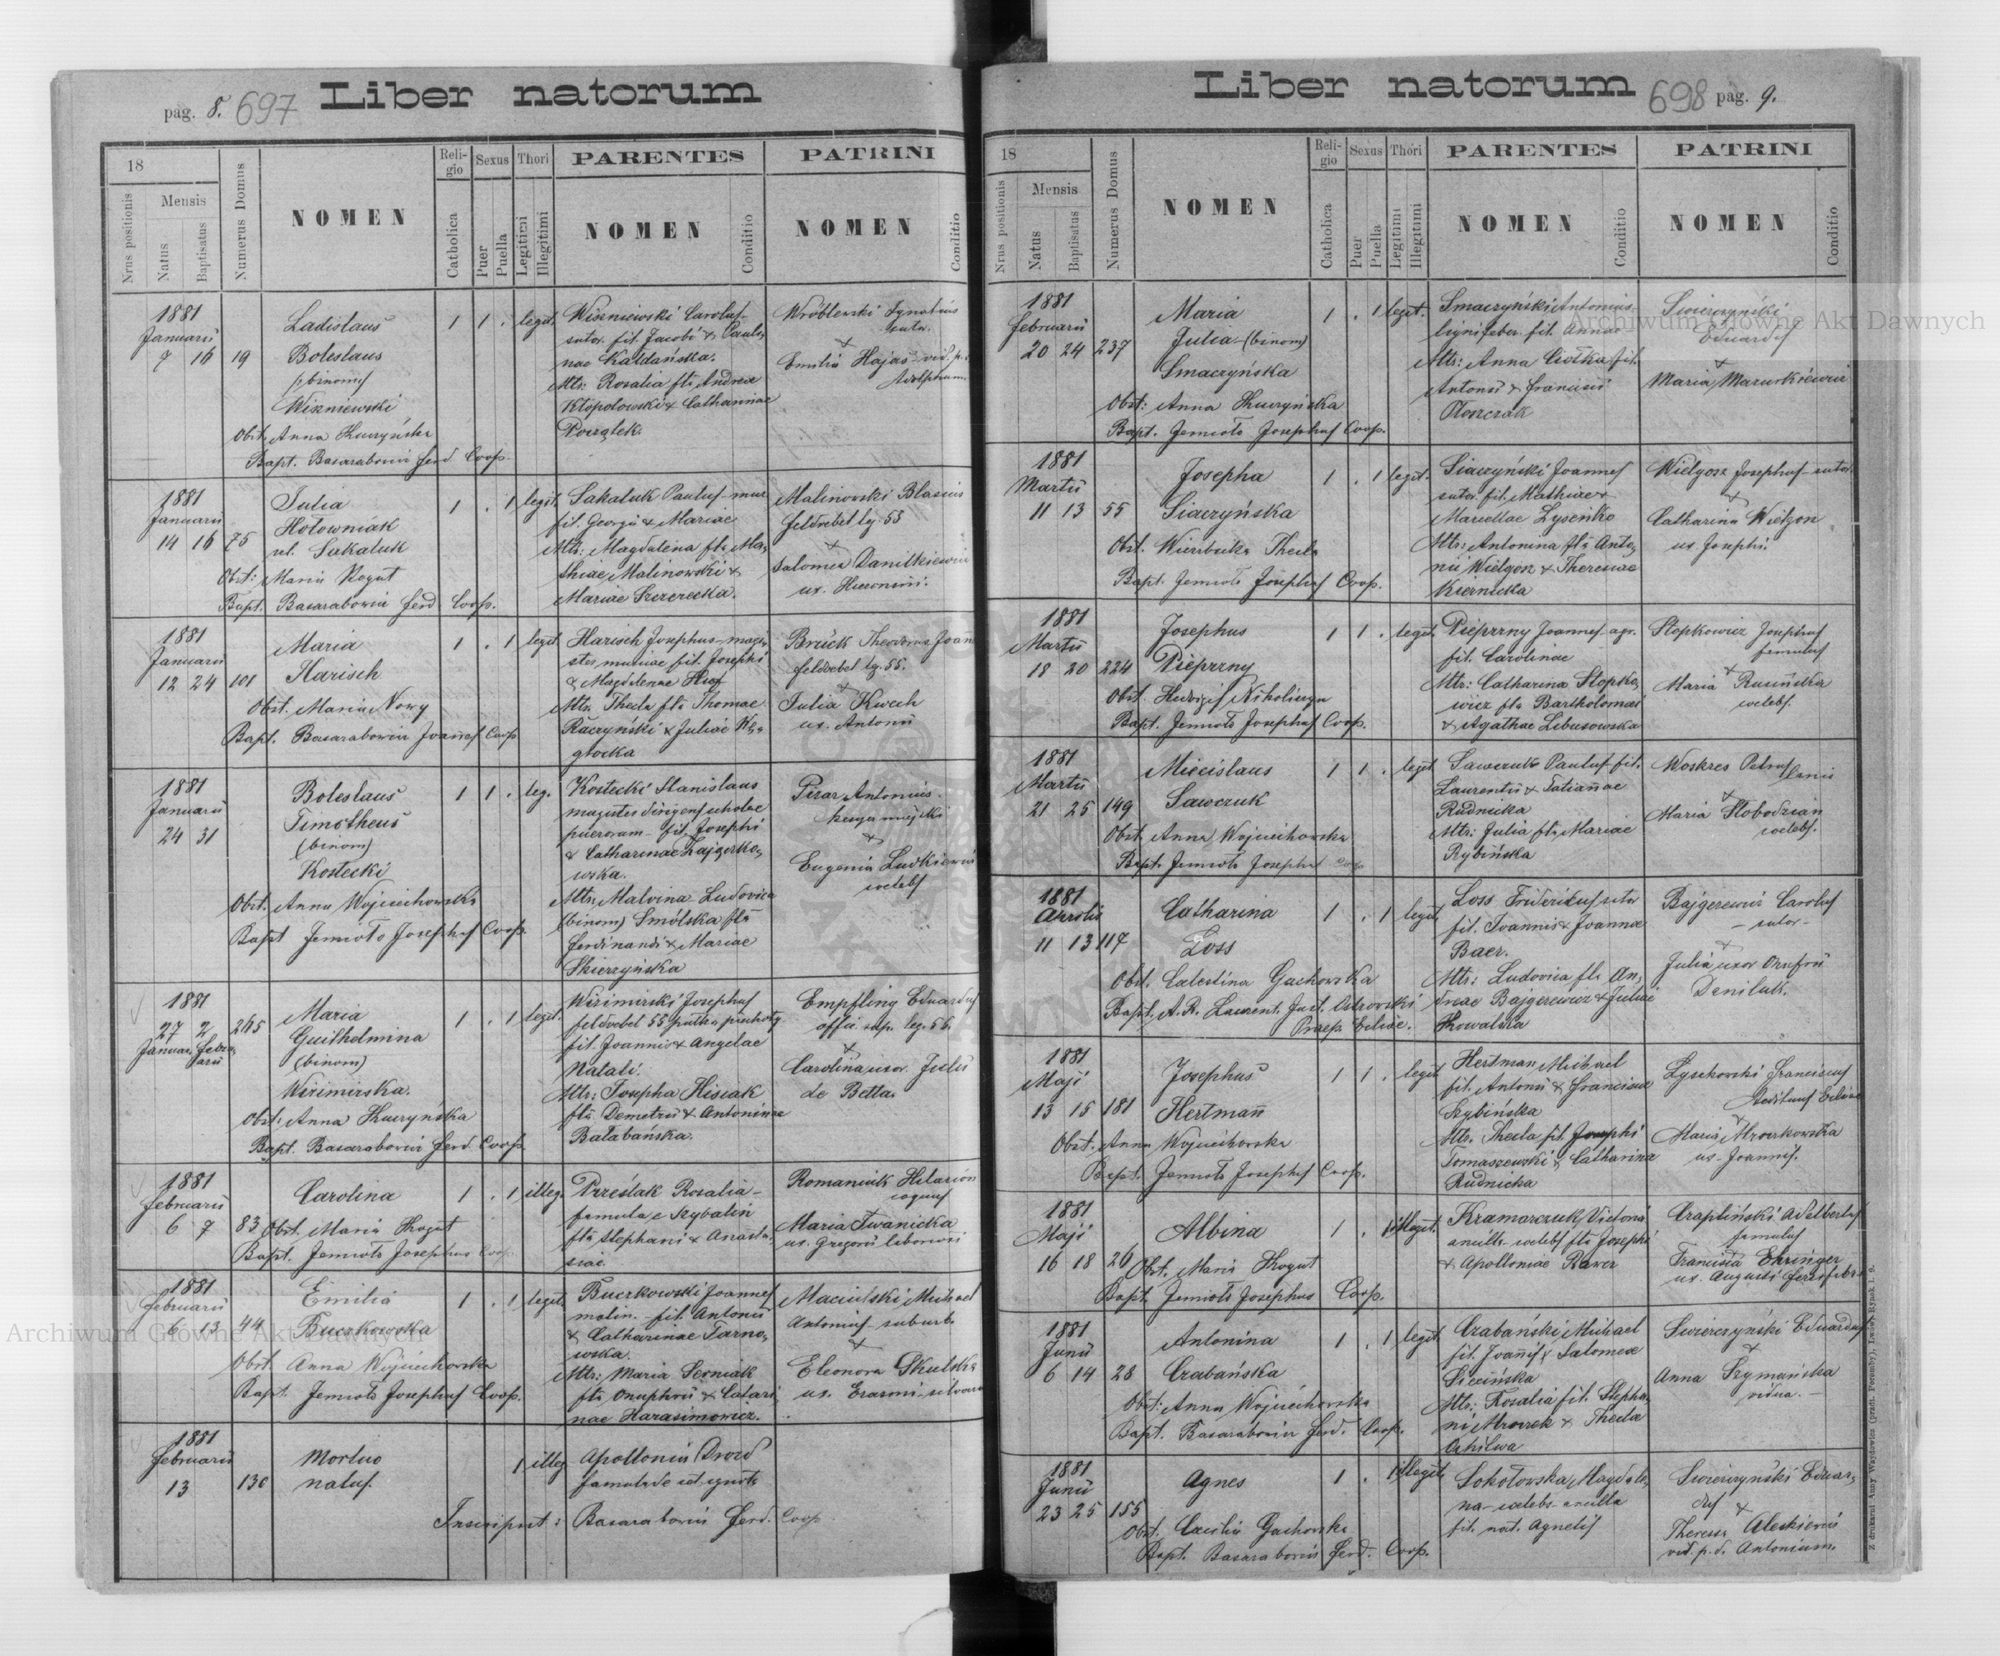 pag. 8. 697 Liber natorum
18
Nrus positionis
Mensis
Natus
Baptisatus
Numerus Domus
NOMEN
Religio
Catholica
Sexus
Puer
Puella
Thori
Legitimi
Illegitimi
PARENTES
NOMEN
Conditio
PATRINI
NOMEN
Conditio
1881
Januarii
7 16 19
Ladislaus
Boleslaus
Wiszniewski
Obst. Anna Kuczyńska
Bapt. Basarabowicz Ferd. Coop.
1 1 . legit.
Wiszniewski Carolus
sutor. fil. Jacobi & Pauli
nae Kaldańska.
Mtr: Rosalia fla Andreae
Kłopotowski & Catharinae
Początek.
Wróblewski Ignatius
+
Emilia Hajas vid. p.
Adolphum.
1881
Januarii
14 16 75
Julia
Hołowniak
vl. Sakaluk
Obst: Maria Kogut
Bapt. Basarabowicz Ferd. Coop.
1 . 1 legit.
Sakaluk Paulus mur.
fil. Georgii & Mariae
Mtr: Magdalena fla Ma,
thiae Malinowski &
Mariae Szczerecka.
Malinowski Blasius
feldvebel lg. 55
+
Salomea Danilkiewicz
ux. Hieronimi.
1881
Januarii
12 24 101
Maria
Harisch
Obst. Maria Nowy
Bapt. Basarabowicz Joannes Coop
1 . 1 legit.
Harisch Josephus magi,
ster musicae fil. Josephi
& Magdalenae
Mtr. Thecla fla Thomae
Raczyński & Juliae Wę,
głocka
Brück Theodorus Joan
feldvebel lg. 55.
+
Julia Kwech
ux. Antonii
1881
Januarii
24 31
Boleslaus
Timotheus
(binom)
Kostecki
Obst. Anna Wojciechowska
Bapt Jemioło Josephus Coop.
1 1 . leg.
Kostecki Stanislaus
magister dirigens scholae
puerorum fil. Josephi
& Catharinae Zajączko,
wska.
Mtr: Malvina Ludovica
(binom) Smólska fla
Ferdinandi & Mariae
Skierzyńska
Pisar Antonius
kasyer miejski
+
Eugenia Ludkiewicz
caelebs
1881
27 2 265
Januar. Febru
arii
Maria
Guilhelmina
(binom)
Wizimirska.
Obst: Anna Kuczyńska
Bapt. Basarabowicz Ferd. Coop.
1 . 1 legit.
Wizimirski Josephus
feldvebel 55 pułku piechoty
fil. Joannis & Angelae
Natali.
Mtr: Josepha Hisiak
fla Demetrii & Antoninae
Bałabańska.
Empfling Eduardus
offic. sup. leg. 56
+
Carolina uxor Julii
de Betta
1881
Februarii
6 7 83
Carolina
Obst. Maria Kogut
Bapt. Jemioło Josephus Coop.
1 . 1 illeg.
Prześlak Rosalia
famula e Szybalin
fla Stephani & Anasta,
siae
Romaniuk Hilarion
coquus
Maria Iwanicka
ux. Gregorii
1881
Februarii
6 13 44
Emilia
Buczkowska
Obst. Anna Wojciechowska
Bapt. Jemioło Josephus Coop.
1 . 1 legit.
Buczkowski Joannes
molin. fil. Antonii
& Catharinae Tarno,
wska.
Mtr: Maria Serniak
fla Onuphrii & Catari
nae Harasimowicz.
Maciulski Michael
Antonius suburb
+
Eleonora Skulska
ux. Erasmi
1881
Februarii
13 130
Mortuo
natus.
1 illeg.
Apollonia Drozd
famula
Inscripsit: Basarabowicz Ferd. Coop.
Liber natorum 698 pag. 9.
18
Nrus positionis
Mensis
Natus
Baptisatus
Numerus Domus
NOMEN
Religio
Catholica
Sexus
Puer
Puella
Thori
Legitimi
Illegitimi
PARENTES
NOMEN
Conditio
PATRINI
NOMEN
Conditio
1881
Februarii
20 24 237
Maria
Julia (binom)
Smaczyńska
Obst: Anna Kuczyńska
Bapt. Jemioło Josephus Coop.
1 . 1 legit.
Smaczyński Antonius
lignifaber fil. Annae
Mtr: Anna Ciołka fil.
Antonii & Franciscae
Tłoszczak
Swierczyński
Eduardus
+
Maria Mazurkiewicz
1881
Martii
11 13 55
Josepha
Siaczyńska
Obst. Wierzbicka Thecla
Bapt. Jemioło Josephus Coop.
1 . 1 legit.
Siaczyński Joannes
sutor fil. Mathiae &
Marcellae Lysenko
Mtr: Antonina fla Anto,
nii Wielgosz & Theresiae
Kiernicka
Wielgosz Josephus sutor.
+
Catharina Wielgosz
ux. Josephi
1881
Martii
18 20 224
Josephus
Pieprzny
Obst. Hedvigis
Bapt. Jemioło Josephus Coop.
1 1 . legit.
Pieprzny Joannes agr.
fil. Carolinae
Mtr: Catharina Słopko,
wicz fla Bartholomaei
& Agathae Libusowska
Słopkowicz Josephus
famulus
+
Maria Rusinska
caelebs.
1881
Martii
21 25 149
Miecislaus
Sawczuk
Obst. Anna Wojciechowska
Bapt. Jemioło Josephus Coop.
1 1 . legit
Sawczuk Paulus fil.
Laurentii & Tatiannae
Rudnicka
Mtr: Julia fla Mariae
Rybińska
Woskres Petrus
+
Maria Słobodzian
caelebs.
1881
Aprilis
11 13 117
Catharina
Loss
Obst. Calestina Gachowska
Bapt. A. R. Laurent. Just. Ostrowski
Praep. Eccliae.
1 . 1 legit,
Loss Fridericus sutor
fil. Joannis & Joannae
Baer.
Mtr: Ludovica fla An,
dreae Bajgerewicz & Juliae
Kowalska
Bajgerewicz Carolus
- sutor -
+
Julia uxor Onufrii
Deniluk.
1881
Maji
13 15 181
Josephus
Hertmann
Obst. Anna Wojciechowska
Bapt. Jemioło Josephus Coop.
1 1 . legit
Hertman Michael
fil. Antonii & Franciscae
Szybińska
Mtr. Thecla fil. Josephi
Tomaszewski & Catharina
Rudnicka
Łysakowski Franciscus
Aedituus Eccliae
+
Maria Mroczkowska
ux. Joannis.
1881
Maji
16 18 26
Albina
Obst. Maria Kogut
Bapt. Jemioło Josephus Coop.
1 . 1 illegit.
Kramarczuk Victoria
ancilla caelebs fla Josephi
& Apolloniae Rawer
Czapliński Adelbertus
famulus
Francisca Ehringer
ux. Augusti
1881
Junii
6 14 28
Antonina
Czabańska
Obst: Anna Wojciechowska
Bapt. Basarabowicz Ferd. Coop.
1 . 1 legit.
Czabański Michael
fil. Joannis & Salomeae
Siecińska
Mtr: Rosalia fil. Stepha,
ni Mroczek & Thecla
Cehilwa
Swierczyński Eduardus
+
Anna Szymańska
vidua.
1881
Junii
23 25 155
Agnes
Obst. Cacilia Gachowska
Bapt. Basarabowicz Ferd. Coop.
1 . 1 illegit.
Sokołowska Magdale,
na caelebs ancilla
fil. nat. Agnetis
Swierczyński Eduar,
dus +
Theresa Aleskiewicz
vid. p. d. Antonium.
Z drukarni Anny Wajdowicz (przedt. Poremby), Lwów, Rynek l. 9.
Archiwum Główne Akt Dawnych
Archiwum Główne Akt